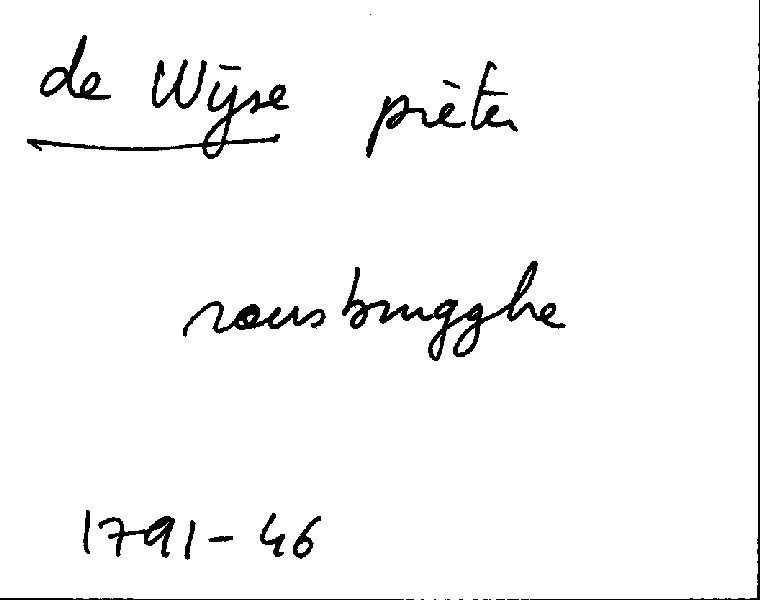 de Wijse pièter
rousbrugghe
1791-46